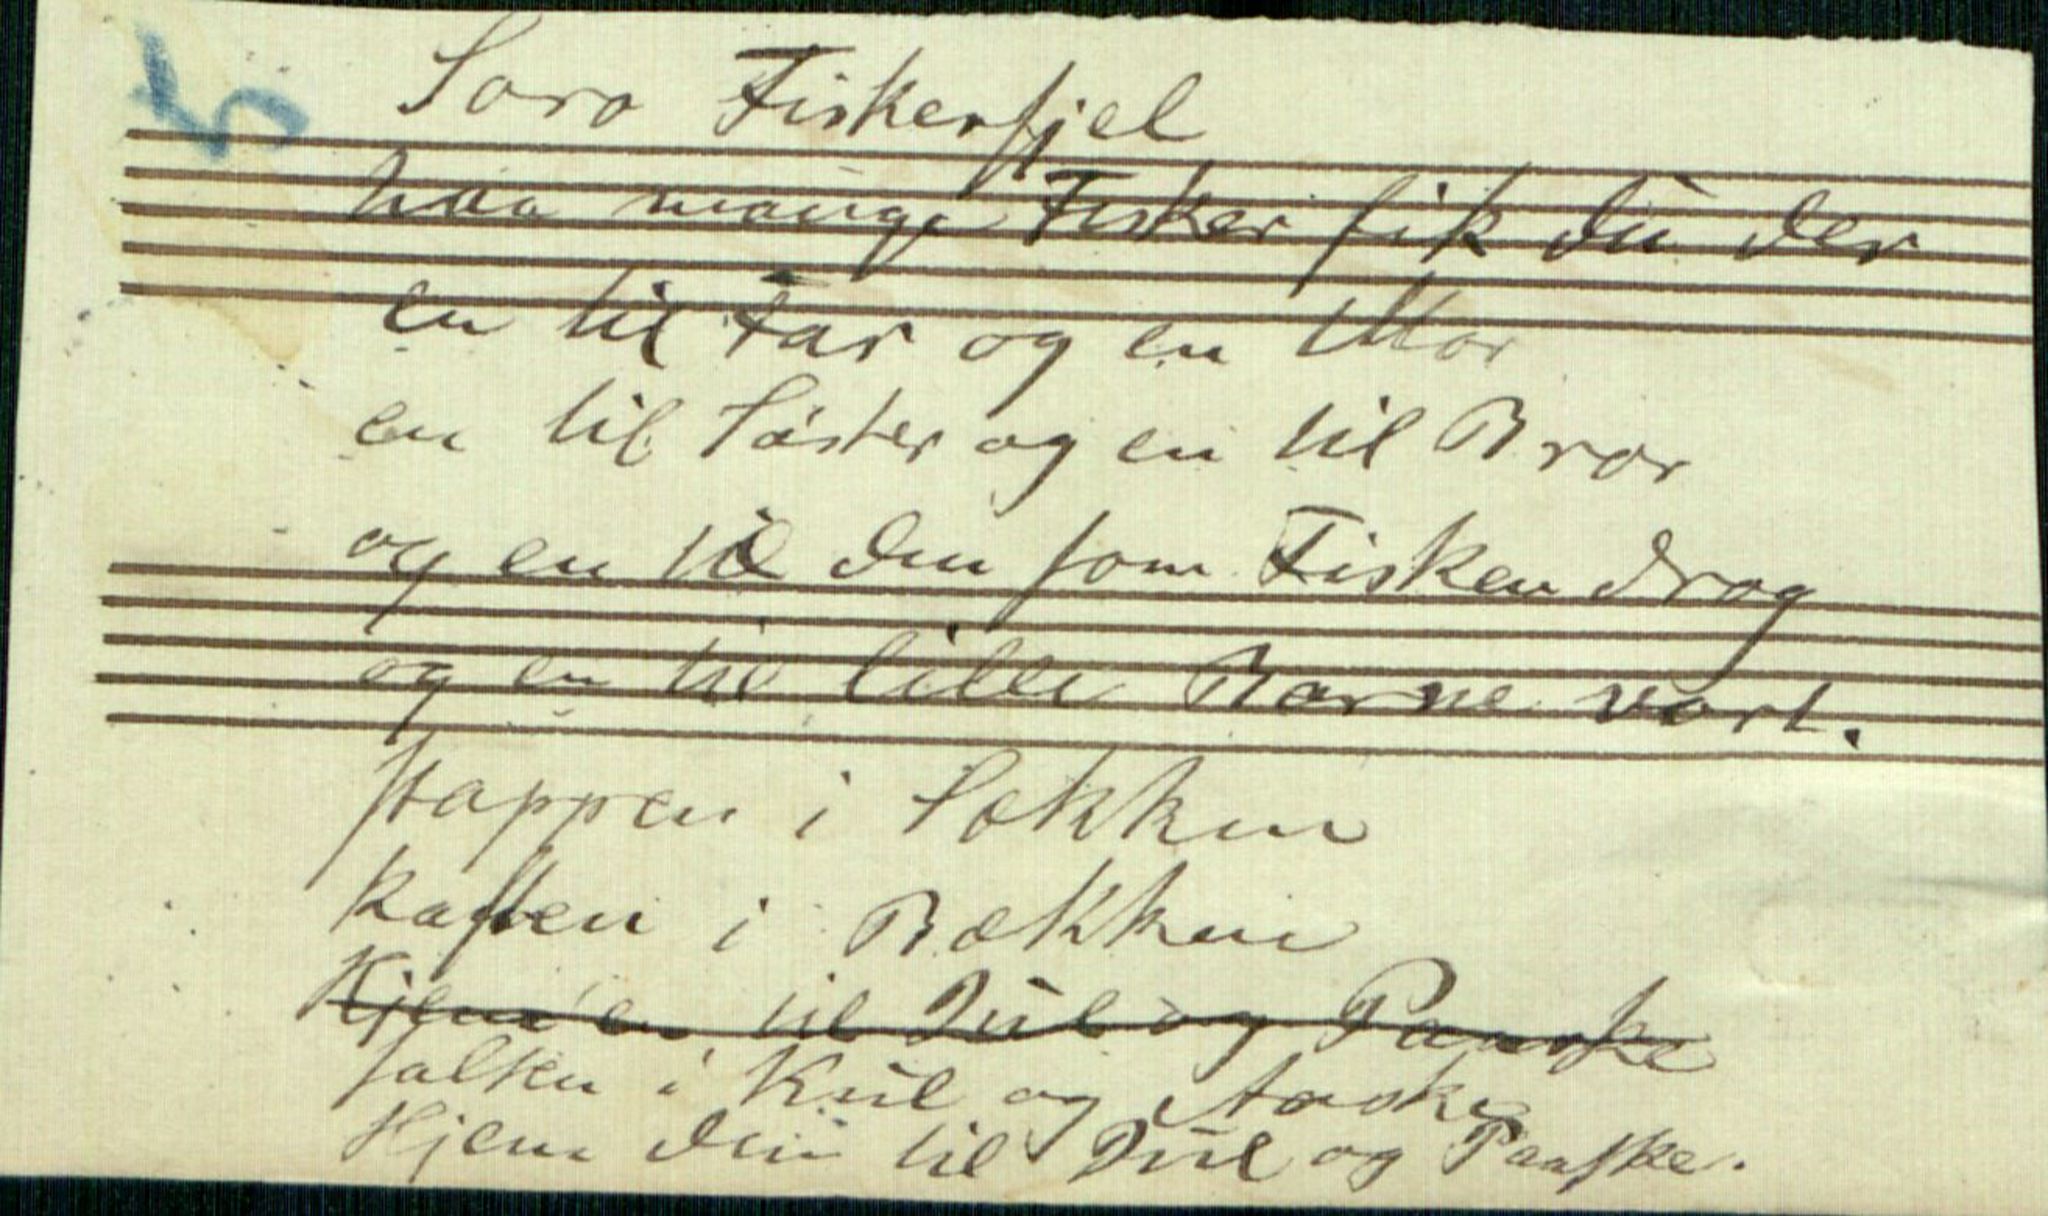 Soro Fiskerfjel
hvaa mange Fisker fik du der
en til Far og en Mor
en til Söster og en til Bror
og en til den som Fisken drog
og en til lille Barne vort.
stappen i Sækken
kasten i Bækken
Kjem en til Jul og Paaske
falken i Kul og Aaske
Hjem din til Jul og Paaske.